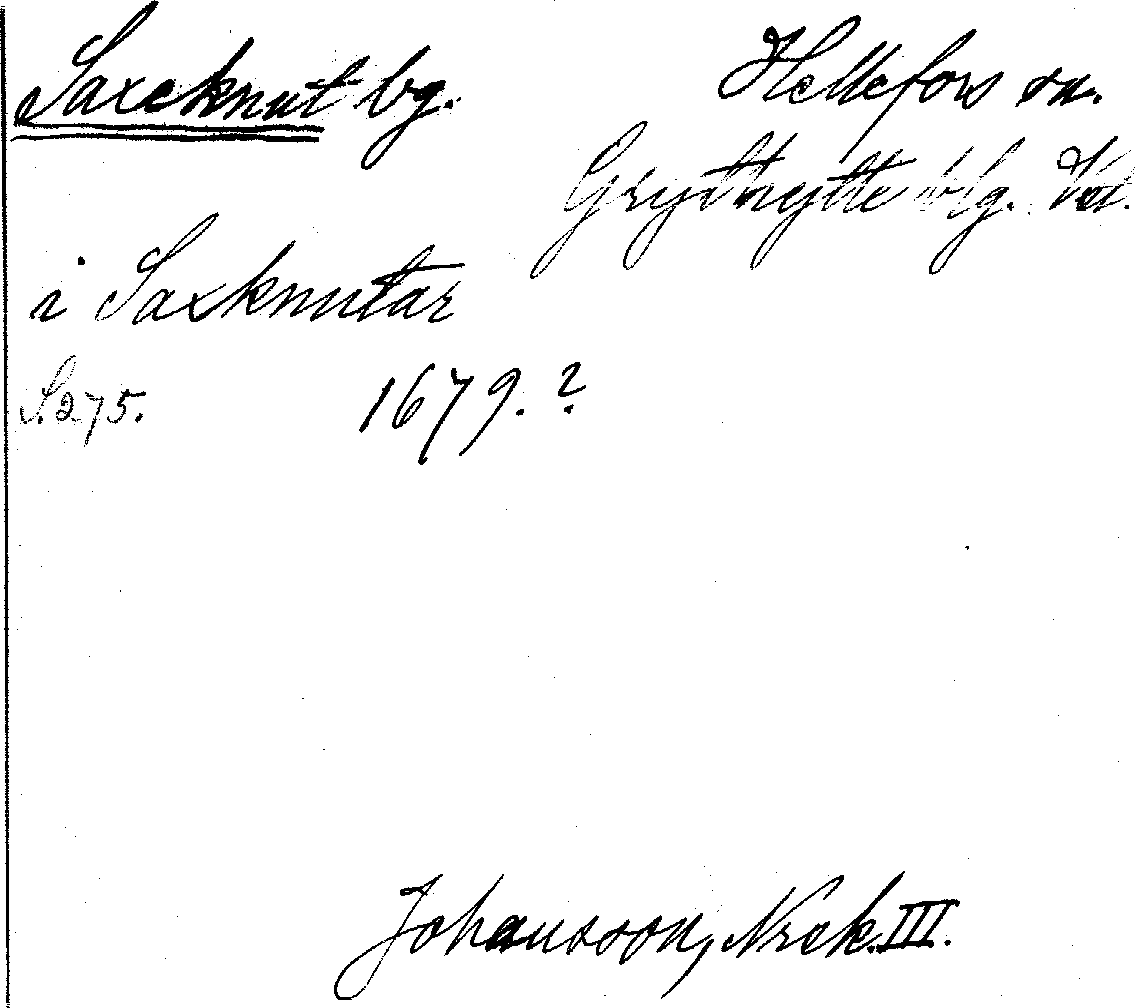 Saxeknut bg. Hellefors sn.
Grythytte blg. Vstl.
i Saxknutar
S. 275. 1679. ?
Johansson, Nrck. III.